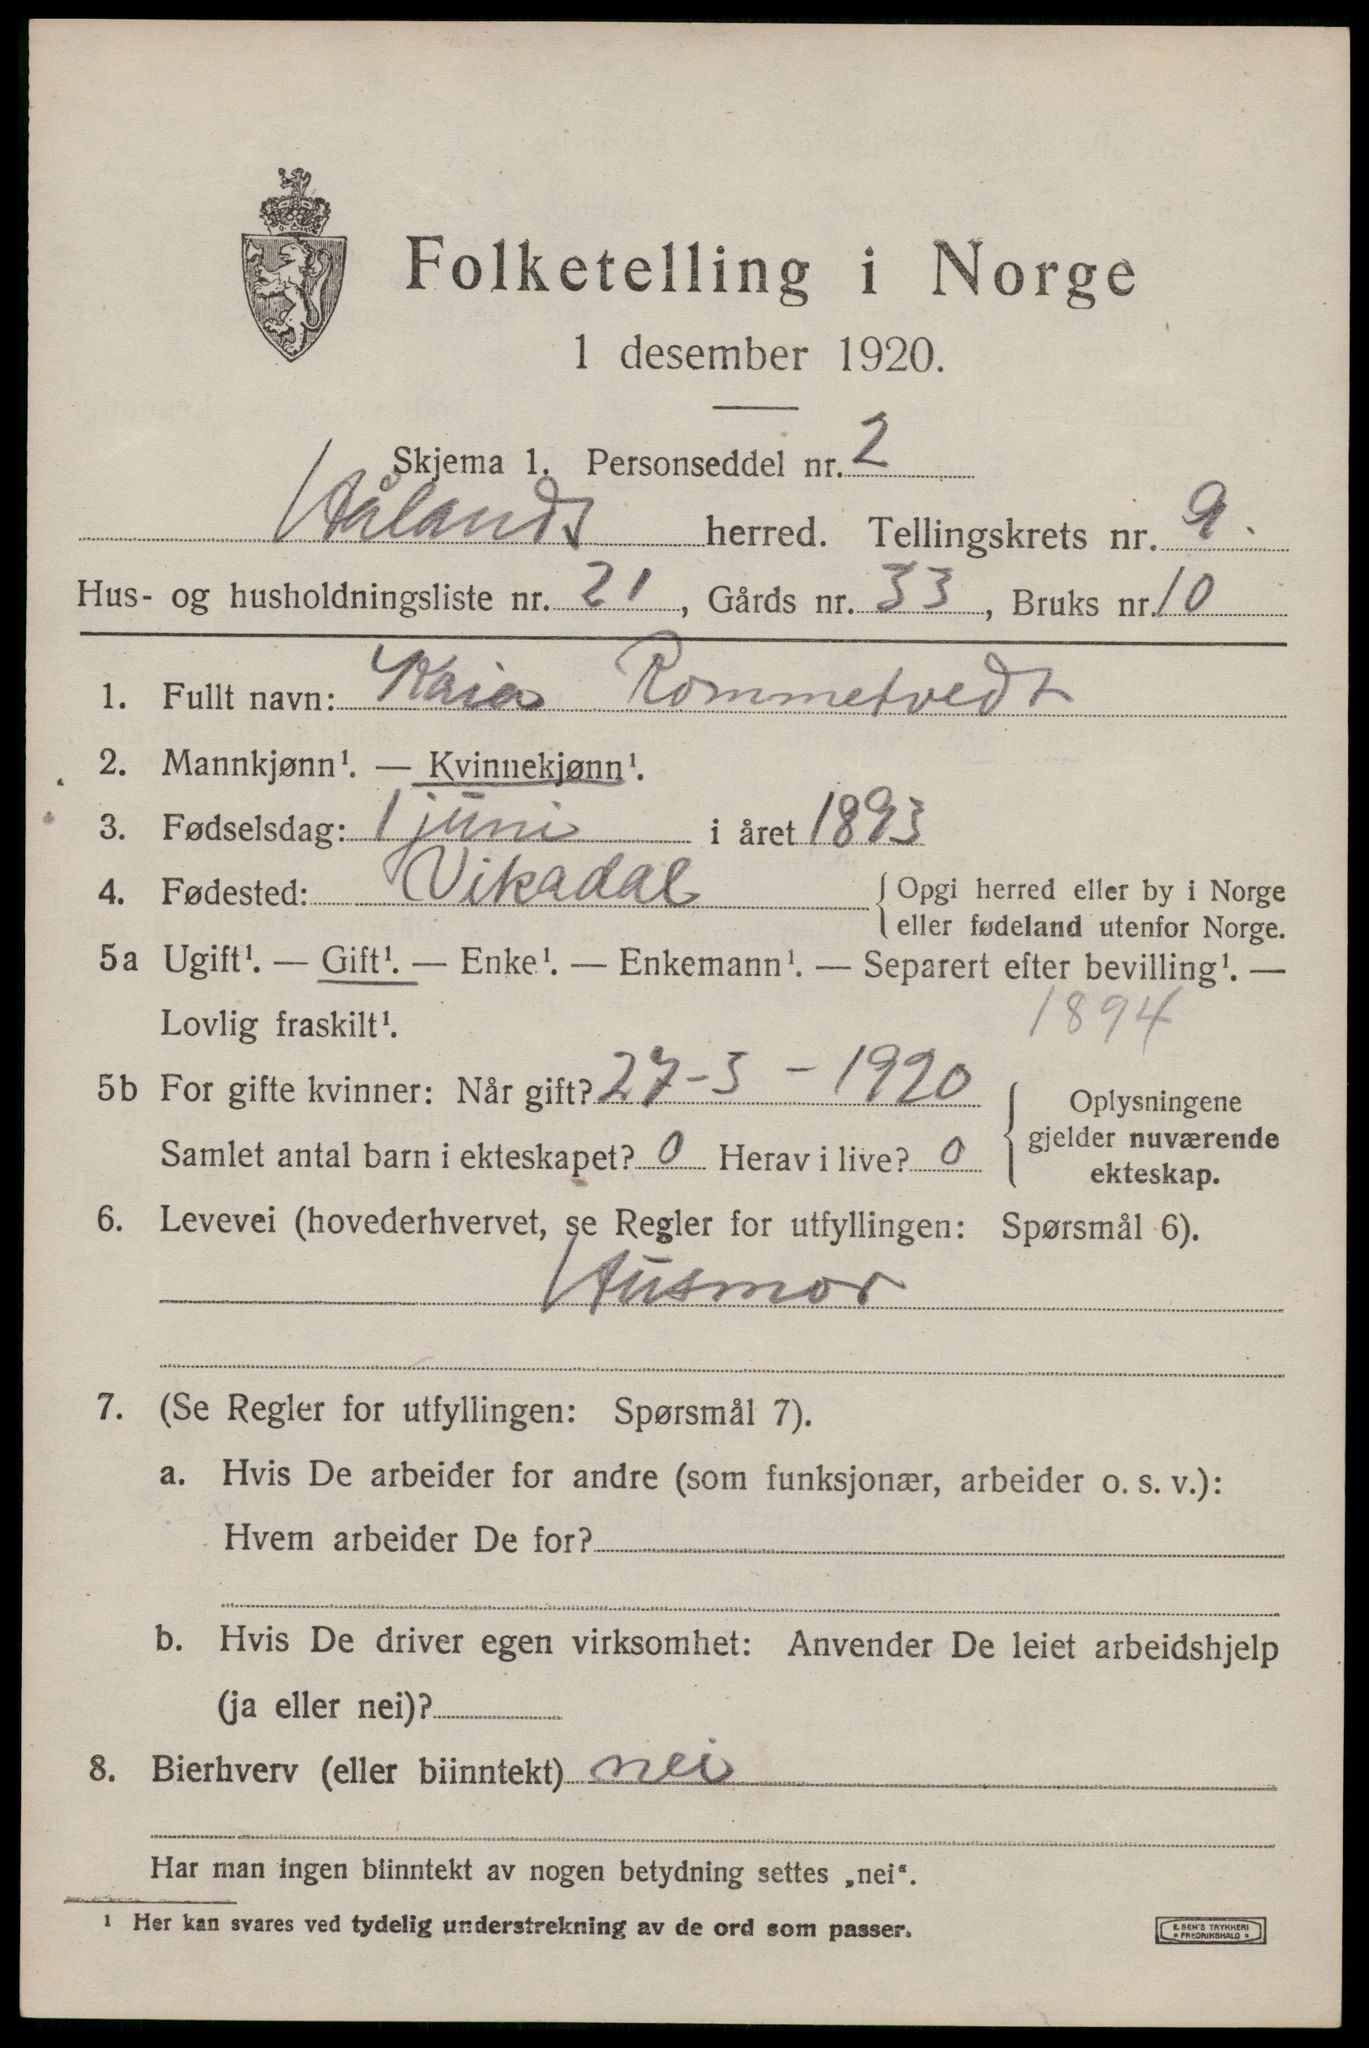 Folketelling i Norge
1 desember 1920.
Skjema 1. Personseddel nr. 2
Hålands herred. Tellingskrets nr. 9.
Hus- og husholdningsliste nr. 21, Gårds nr. 33, Bruks nr. 10
1. Fullt navn: Kaia Rommetvedt
2. Mannkjønn¹. — Kvinnekjønn¹.
3. Fødselsdag: 1 juni i året 1893
4. Fødested: Vikadal { Opgi herred eller by i Norge
eller fødeland utenfor Norge.
5a Ugift¹. — Gift¹. — Enke¹. — Enkemann¹. — Separert efter bevilling¹. —
Lovlig fraskilt¹. 1894
5b For gifte kvinner: Når gift? 27-3-1920 { Oplysningene
gjelder nuværende
Samlet antal barn i ekteskapet? 0 Herav i live? 0
ekteskap.
6. Levevei (hovederhvervet, se Regler for utfyllingen: Spørsmål 6).
Husmor
7. (Se Regler for utfyllingen: Spørsmål 7).
a. Hvis De arbeider for andre (som funksjonær, arbeider o. s. v.):
Hvem arbeider De for?
b. Hvis De driver egen virksomhet: Anvender De leiet arbeidshjelp
(ja eller nei)?
8. Bierhverv (eller biinntekt) nei
Har man ingen biinntekt av nogen betydning settes „nei“.
¹ Her kan svares ved tydelig understrekning av de ord som passer.
E. SEM'S TRYKKERI
• FREDRIKSHALD •